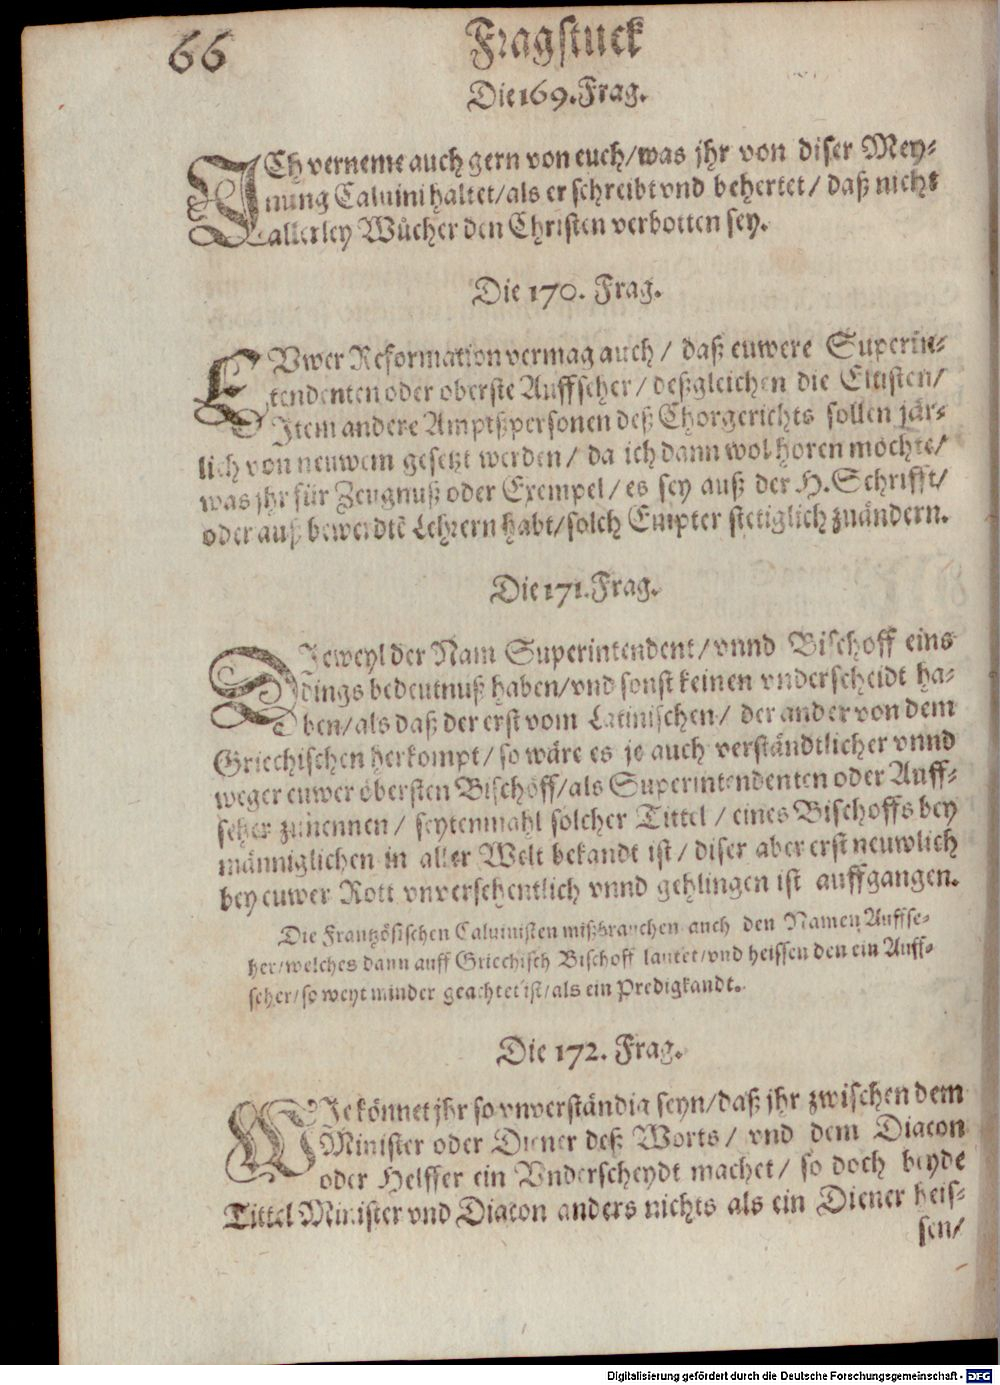 66
Fragstuck
Die 169. Frag.
ICh verneme auch gern von euch/was jhr von diser Mey-
nung Caluini haltet/als er schreibt vnd behertet/ daß nicht
allerley Wůcher den Christen verbotten sey.
Die 170. Frag.
EVwer Reformation vermag auch/ daß euwere Superin-
tendenten oder oberste Auffseher/ deßgleichen die Eltisten/
Item andere Amptßpersonen deß Chorgerichts sollen jär-
lich von neuwem gesetzt werden/ da ich dann wol horen möchte/
was jhr für Zeugnuß oder Exempel/ es sey auß der H. Schrifft/
oder auß bewerdtē Lehrern habt/solch Empter stetiglich zuändern.
Die 171. Frag.
DIeweyl der Nam Superintendent/ vnnd Bischoff eins
dings bedeutnuß haben/vnd sonst keinen vnderscheidt ha-
ben/als daß der erst vom Latinischen/ der ander von dem
Griechischen herkompt/ so wäre es je auch verständtlicher vnnd
weger euwer öbersten Bischöff/als Superintendenten oder Auff-
seher zunennen/ seytenmahl solcher Tittel/ eines Bischoffs bey
männiglichen in aller Welt bekandt ist/ diser aber erst neuwlich
bey euwer Rott vnversehentlich vnnd gehlingen ist auffgangen.
Die Frantzösischen Caluinisten mißbrauchen auch den Namen Auffse-
her/welches dann auff Griechisch Bischoff lautet/vnd heissen den ein Auff-
seher/so weyt minder geachtet ist/als ein Predigkandt.
Die 172. Frag.
WIe könnet jhr so vnverständig seyn/daß jhr zwischen dem
Minister oder Diener deß Worts/ vnd dem Diacon
oder Helffer ein Vnderscheydt machet/ so doch beyde
Tittel Minister vnd Diacon anders nichts als ein Diener heis-
sen/
Digitalisierung gefördert durch die Deutsche Forschungsgemeinschaft - DFG